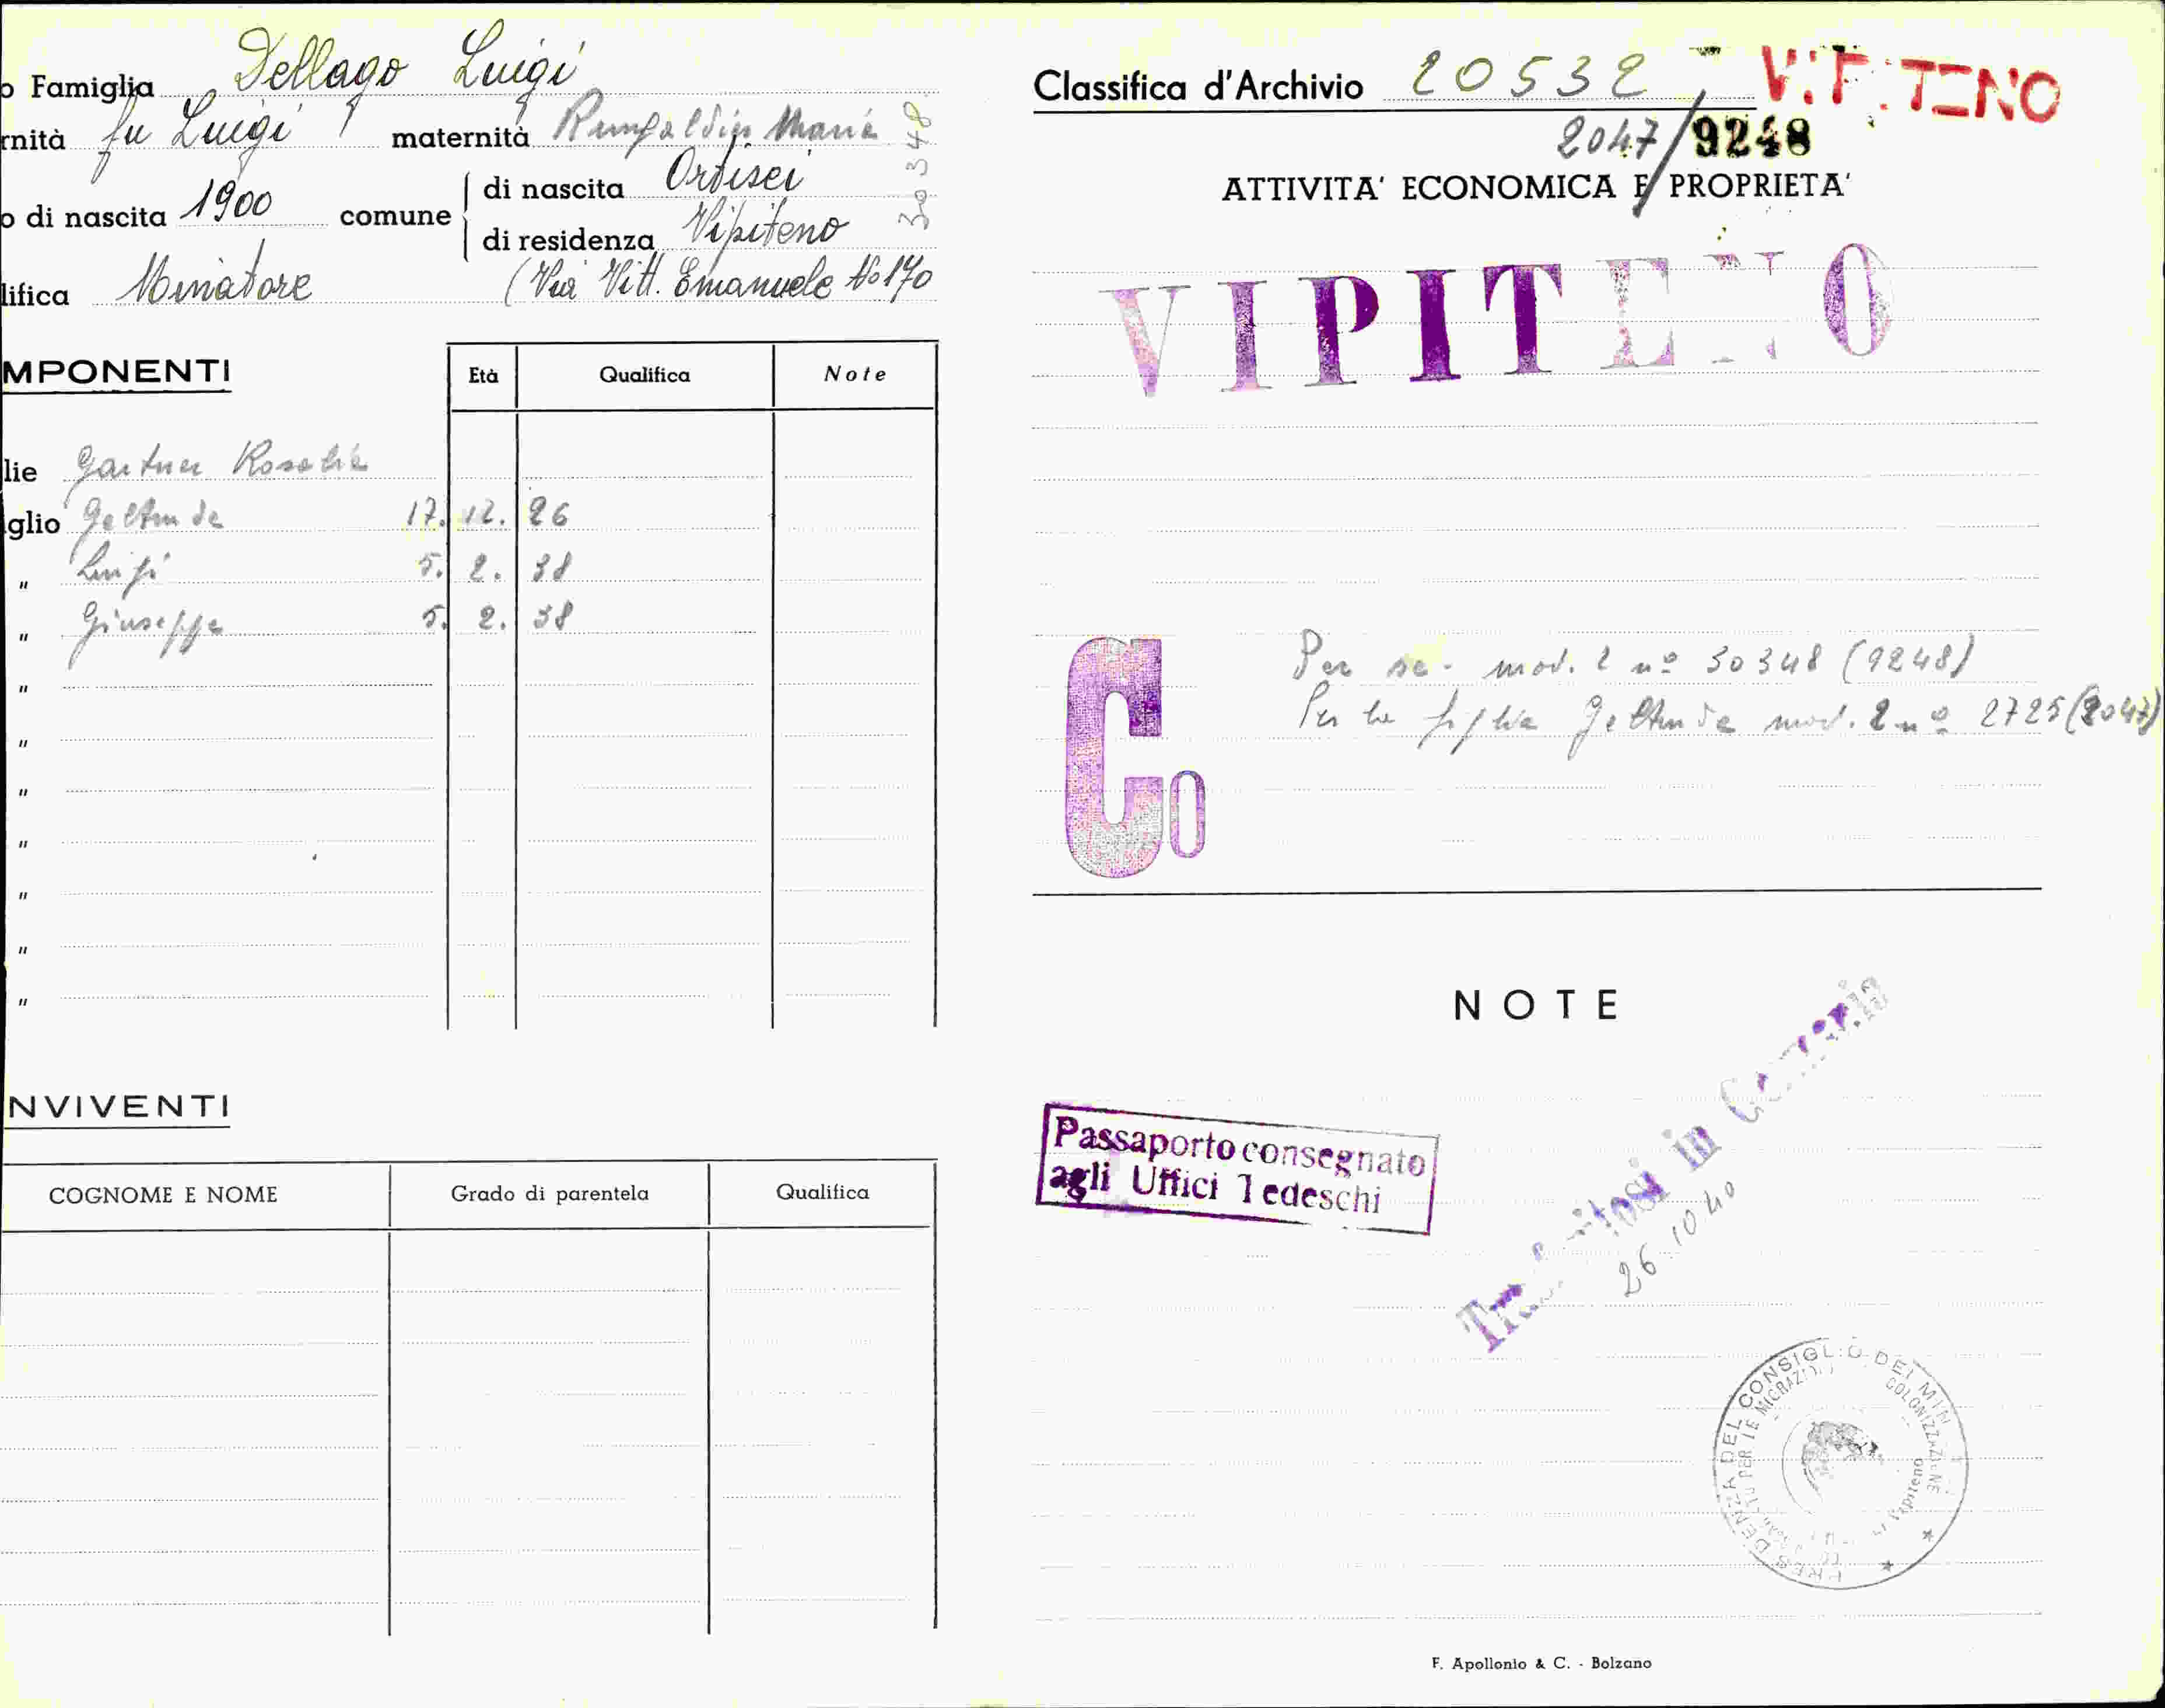 o Famiglia Dellago Luigi
rnità fu Luigi maternità Rungaldin Maria
30348
o di nascita 1900 comune di nascita Ortisei
di residenza Vipiteno
lifica Minatore (Via Vitt. Emanuele No 170
MPONENTI Età Qualifica Note
lie Gartner Rosalia
glio Geltrude 17. 12. 26
" Luigi 5. 2. 38
" Giuseppe 5. 2. 38
"
"
"
"
"
"
"
NVIVENTI
COGNOME E NOME Grado di parentela Qualifica
Classifica d'Archivio 20532
2047/9248
ATTIVITA' ECONOMICA E PROPRIETA'
VIPITENO
Co
Per se - mod. 2 nº 30348 (9248)
Per la figlia Geltrude mod. 2 nº 2725 (2047)
NOTE
Passaporto consegnato
agli Uffici Tedeschi
in Germania
26.10.40
PRESIDENZA DEL CONSIGLIO DEI MIN
PER LE MIGRAZI COLONIZZAZIONE
Vipiteno
F. Apollonio & C. - Bolzano